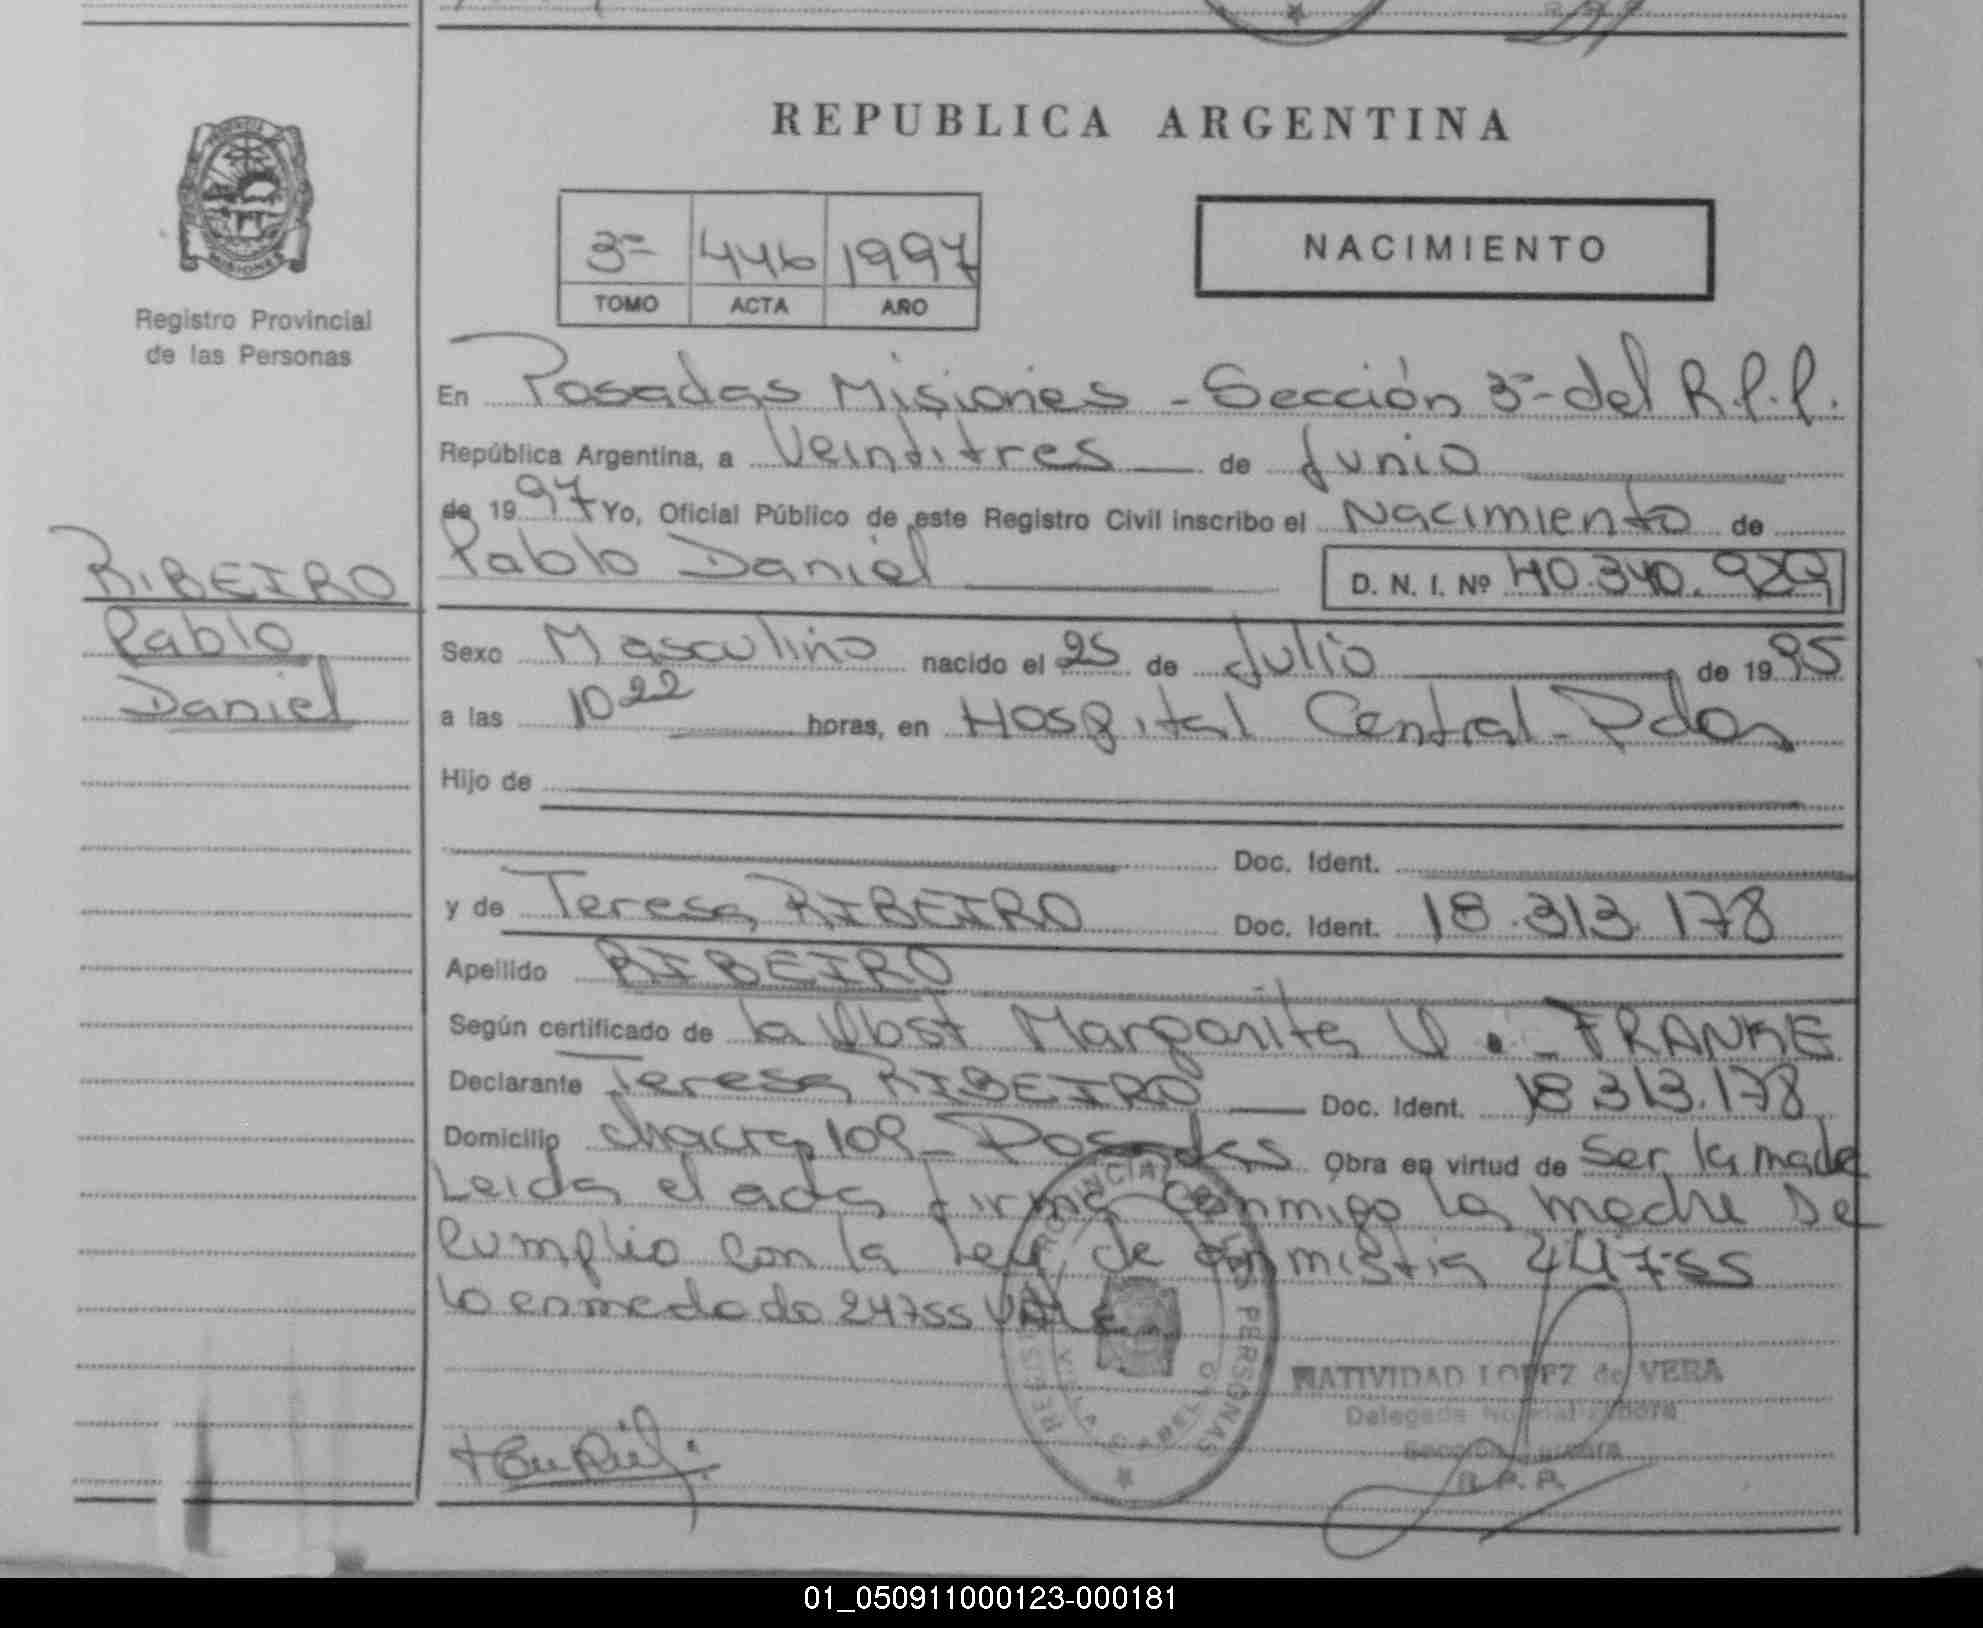 REPUBLICA ARGENTINA
PROVINCIA
MISIONES
Registro Provincial
de las Personas
3º 446 1997
TOMO ACTA AÑO
NACIMIENTO
En Posadas Misiones - Sección 3º del R.P.P.
República Argentina, a Veintitres de Junio
de 1997 Yo, Oficial Público de este Registro Civil inscribo el Nacimiento de
Pablo Daniel D. N. I. Nº 40.340.929
RIBEIRO
Pablo
Daniel
Sexo Masculino nacido el 25 de Julio de 1995
a las 10 22 horas, en Hospital Central - Pdas
Hijo de
Doc. Ident.
y de Teresa RIBEIRO Doc. Ident. 18.313.178
Apellido RIBEIRO
Según certificado de la Obst Margarita U. - FRANKE
Declarante Teresa RIBEIRO Doc. Ident. 18.313.178
Domicilio chacra 109 - Posadas Obra en virtud de ser la madre
Leida el acta firma conmigo la madre se
cumplio con la ley de anmistia 24755
lo enmedado 24755 VALE
NATIVIDAD LOPEZ de VERA
Delegada
R.P.P.
01_050911000123-000181